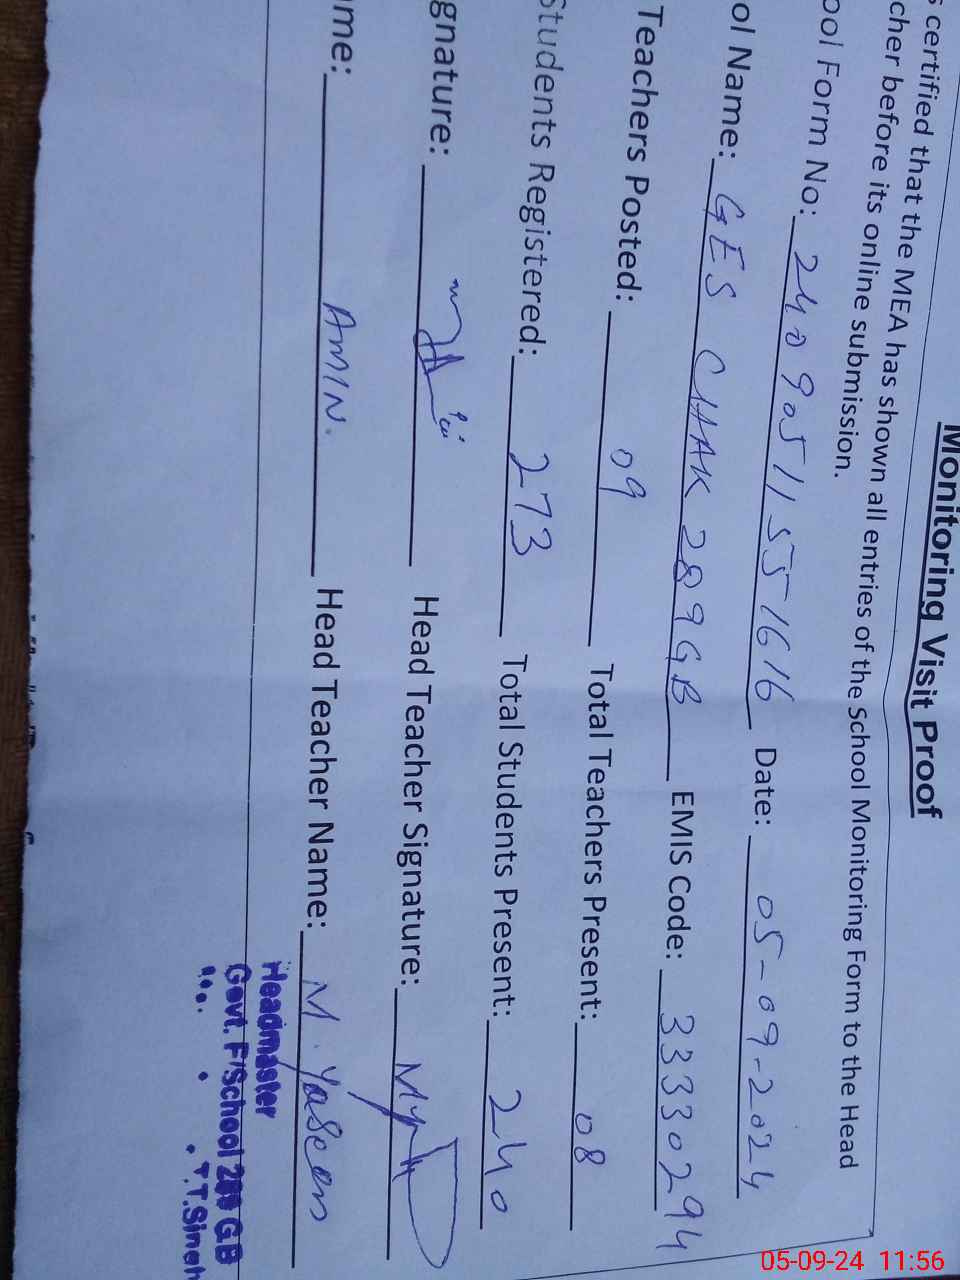 Monitoring Visit Proof
certified that the MEA has shown all entries of the School Monitoring Form to the Head
cher before its online submission.
ool Form No: 240905115516 16 Date: 05-09-2024
ol Name: GES CHAK 289 GB EMIS Code: 33330294
Teachers Posted: 09 Total Teachers Present: 08
Students Registered: 273 Total Students Present: 240
gnature: Head Teacher Signature:
me: AMIN. Head Teacher Name: M. Yaseen
Headmaster
Govt. F/School 289 GB
T.T.Singh
05-09-24 11:56